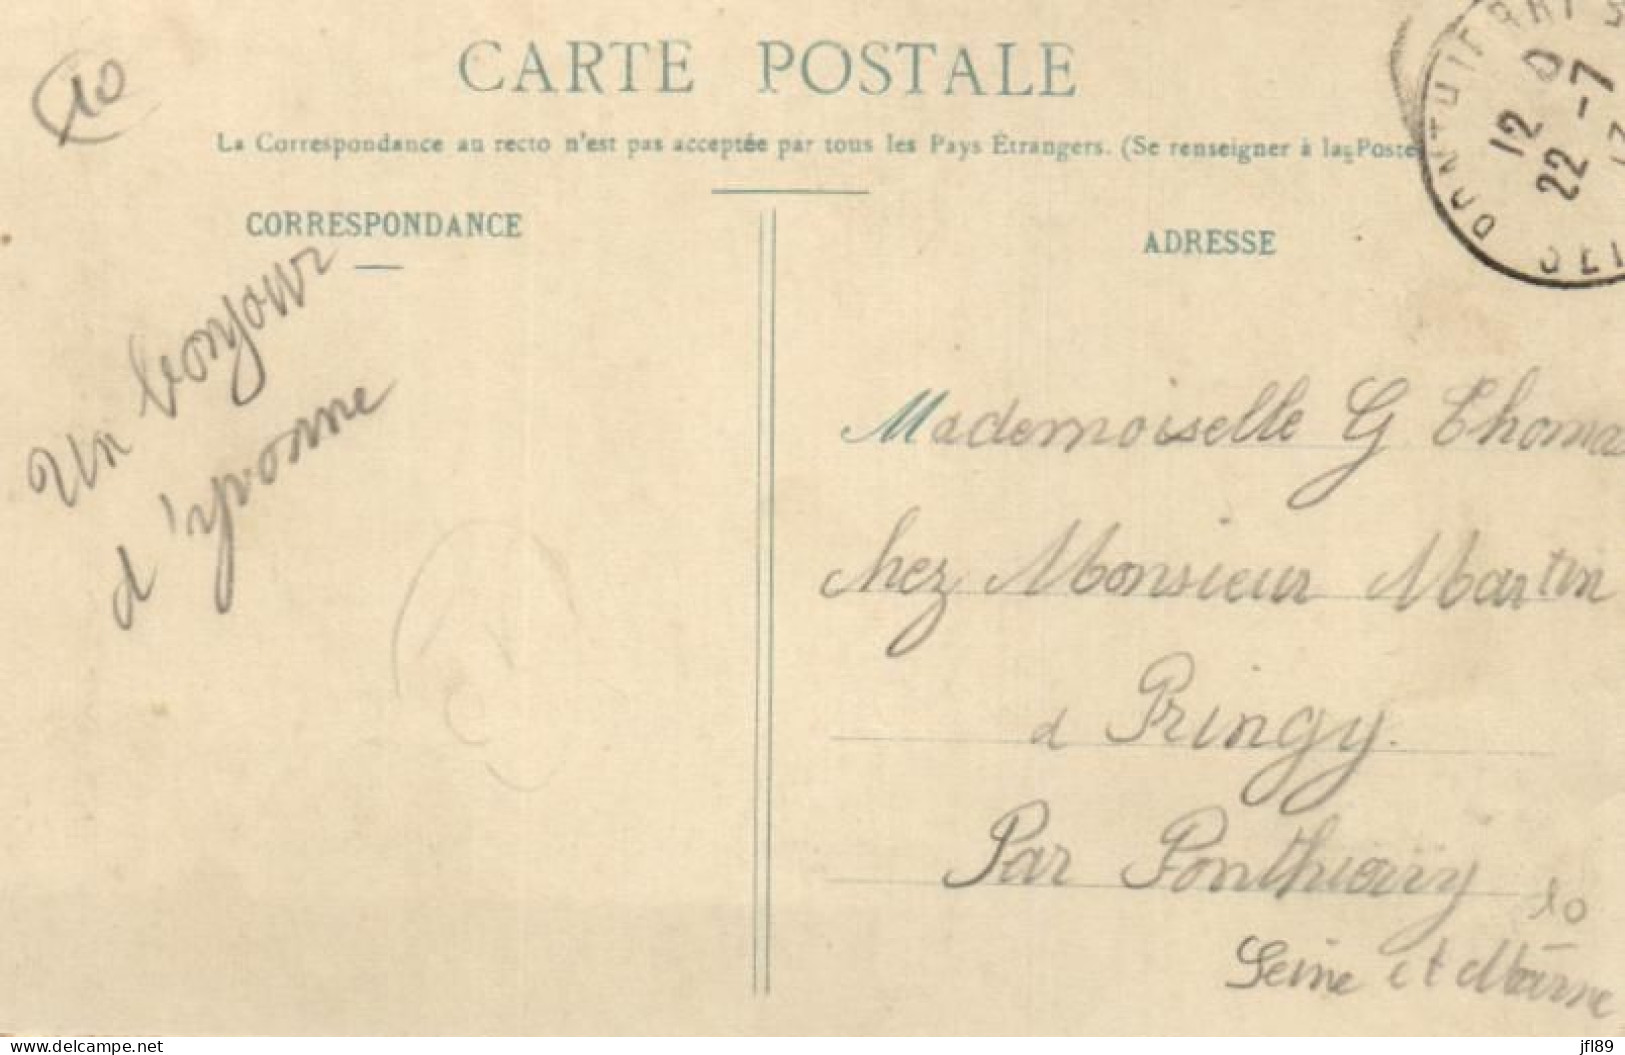 10
CARTE POSTALE
La Correspondance au recto n'est pas acceptée par tous les Pays Étrangers. (Se renseigner à la Poste
CORRESPONDANCE
ADRESSE
12
22 -7
Un bonjour
d'yvonne
Mademoiselle G Thomas
chez Monsieur Martin
a Pringy.
Par Ponthierry
10
Seine et Marne
delcampe.net
jfl89